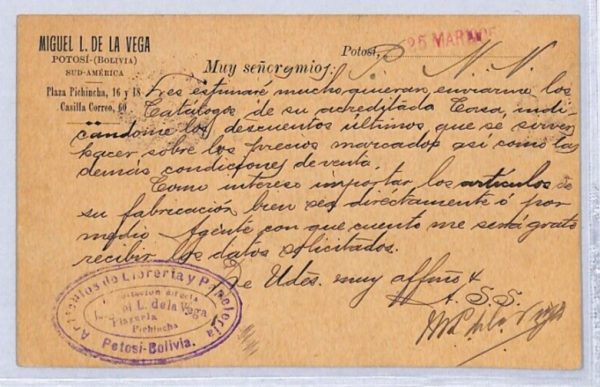 MIGUEL L. DE LA VEGA
POTOSÍ-(BOLIVIA)
SUD-AMÉRICA
Plaza Pichincha, 16 y 18
Casilla Correo, 60
Potosí, 25 MAR
P. N. N.
Muy señores mios:
Les estimaré mucho quieran enviarme los
Catálogos de su acreditada Casa, indi-
cándome los descuentos últimos que se sirven
hacer sobre los precios marcados así como las
demás condiciones de venta.
Como intereso importar los artículos de
su fabricación, bien sea diréctamente ó por
medio Agente con que cuento me será grato
recibir los datos solicitados.
De Udes. muy affmo &
A. S. S.
M L de la Vega
Artículos de Librería y Papelería
L. de la Vega
Plazuela
Pichincha
Potosí-Bolivia.